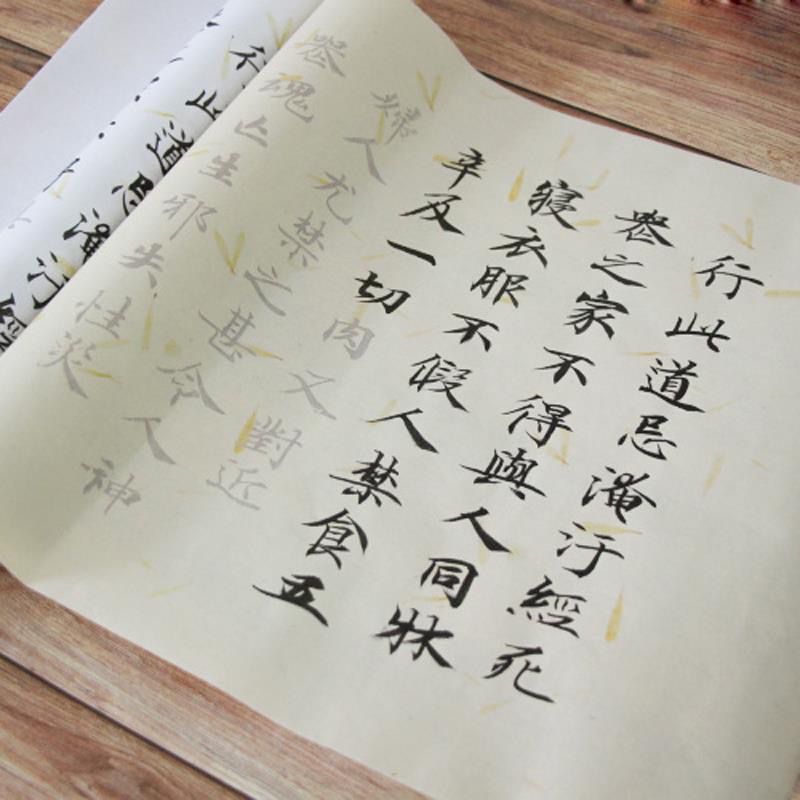 行此道忌淹汙經死
喪之家不得與人同牀
寢衣服不假人禁食五
辛及一切肉又對近
婦人尤禁之甚令人神
喪魂亡生邪失性災
行此道忌淹汙經